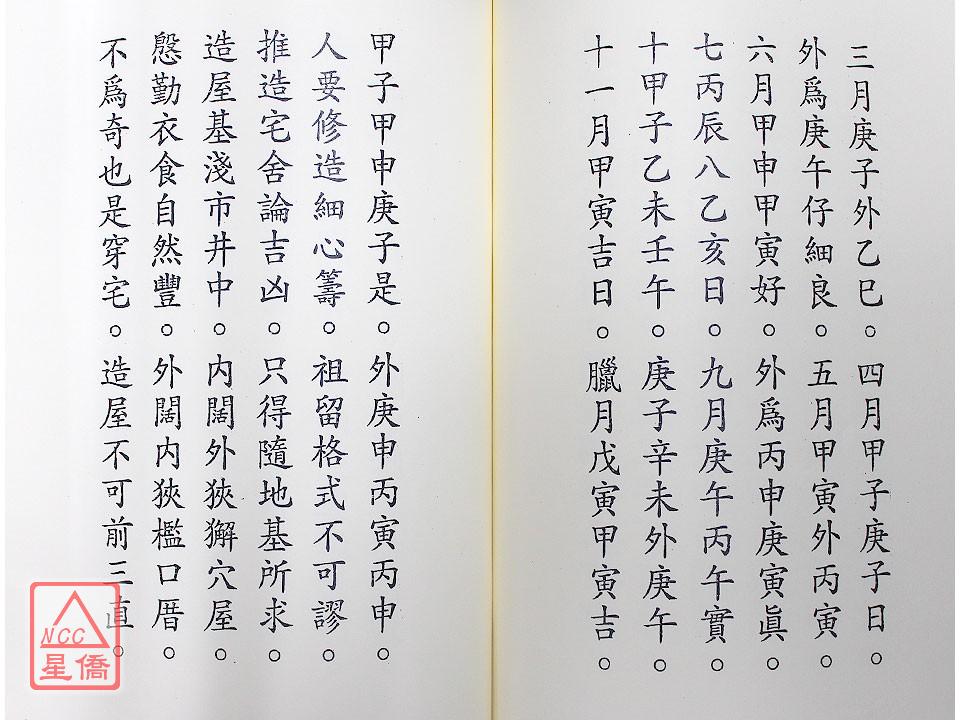 三月庚子外乙巳。四月甲子庚子日。
外爲庚午仔細良。五月甲寅外丙寅。
六月甲申甲寅好。外爲丙申庚寅眞。
七丙辰八乙亥日。九月庚午丙午實。
十甲子乙未壬午。庚子辛未外庚午。
十一月甲寅吉日。臘月戊寅甲寅吉。
甲子甲申庚子是。外庚申丙寅丙申。
人要修造細心籌。祖留格式不可謬。
推造宅舍論吉凶。只得隨地基所求。
造屋基淺市井中。內闊外狹獬穴屋。
慇勤衣食自然豐。外闊內狹檻口厝。
不爲奇也是穿宅。造屋不可前三直。
NCC
星僑